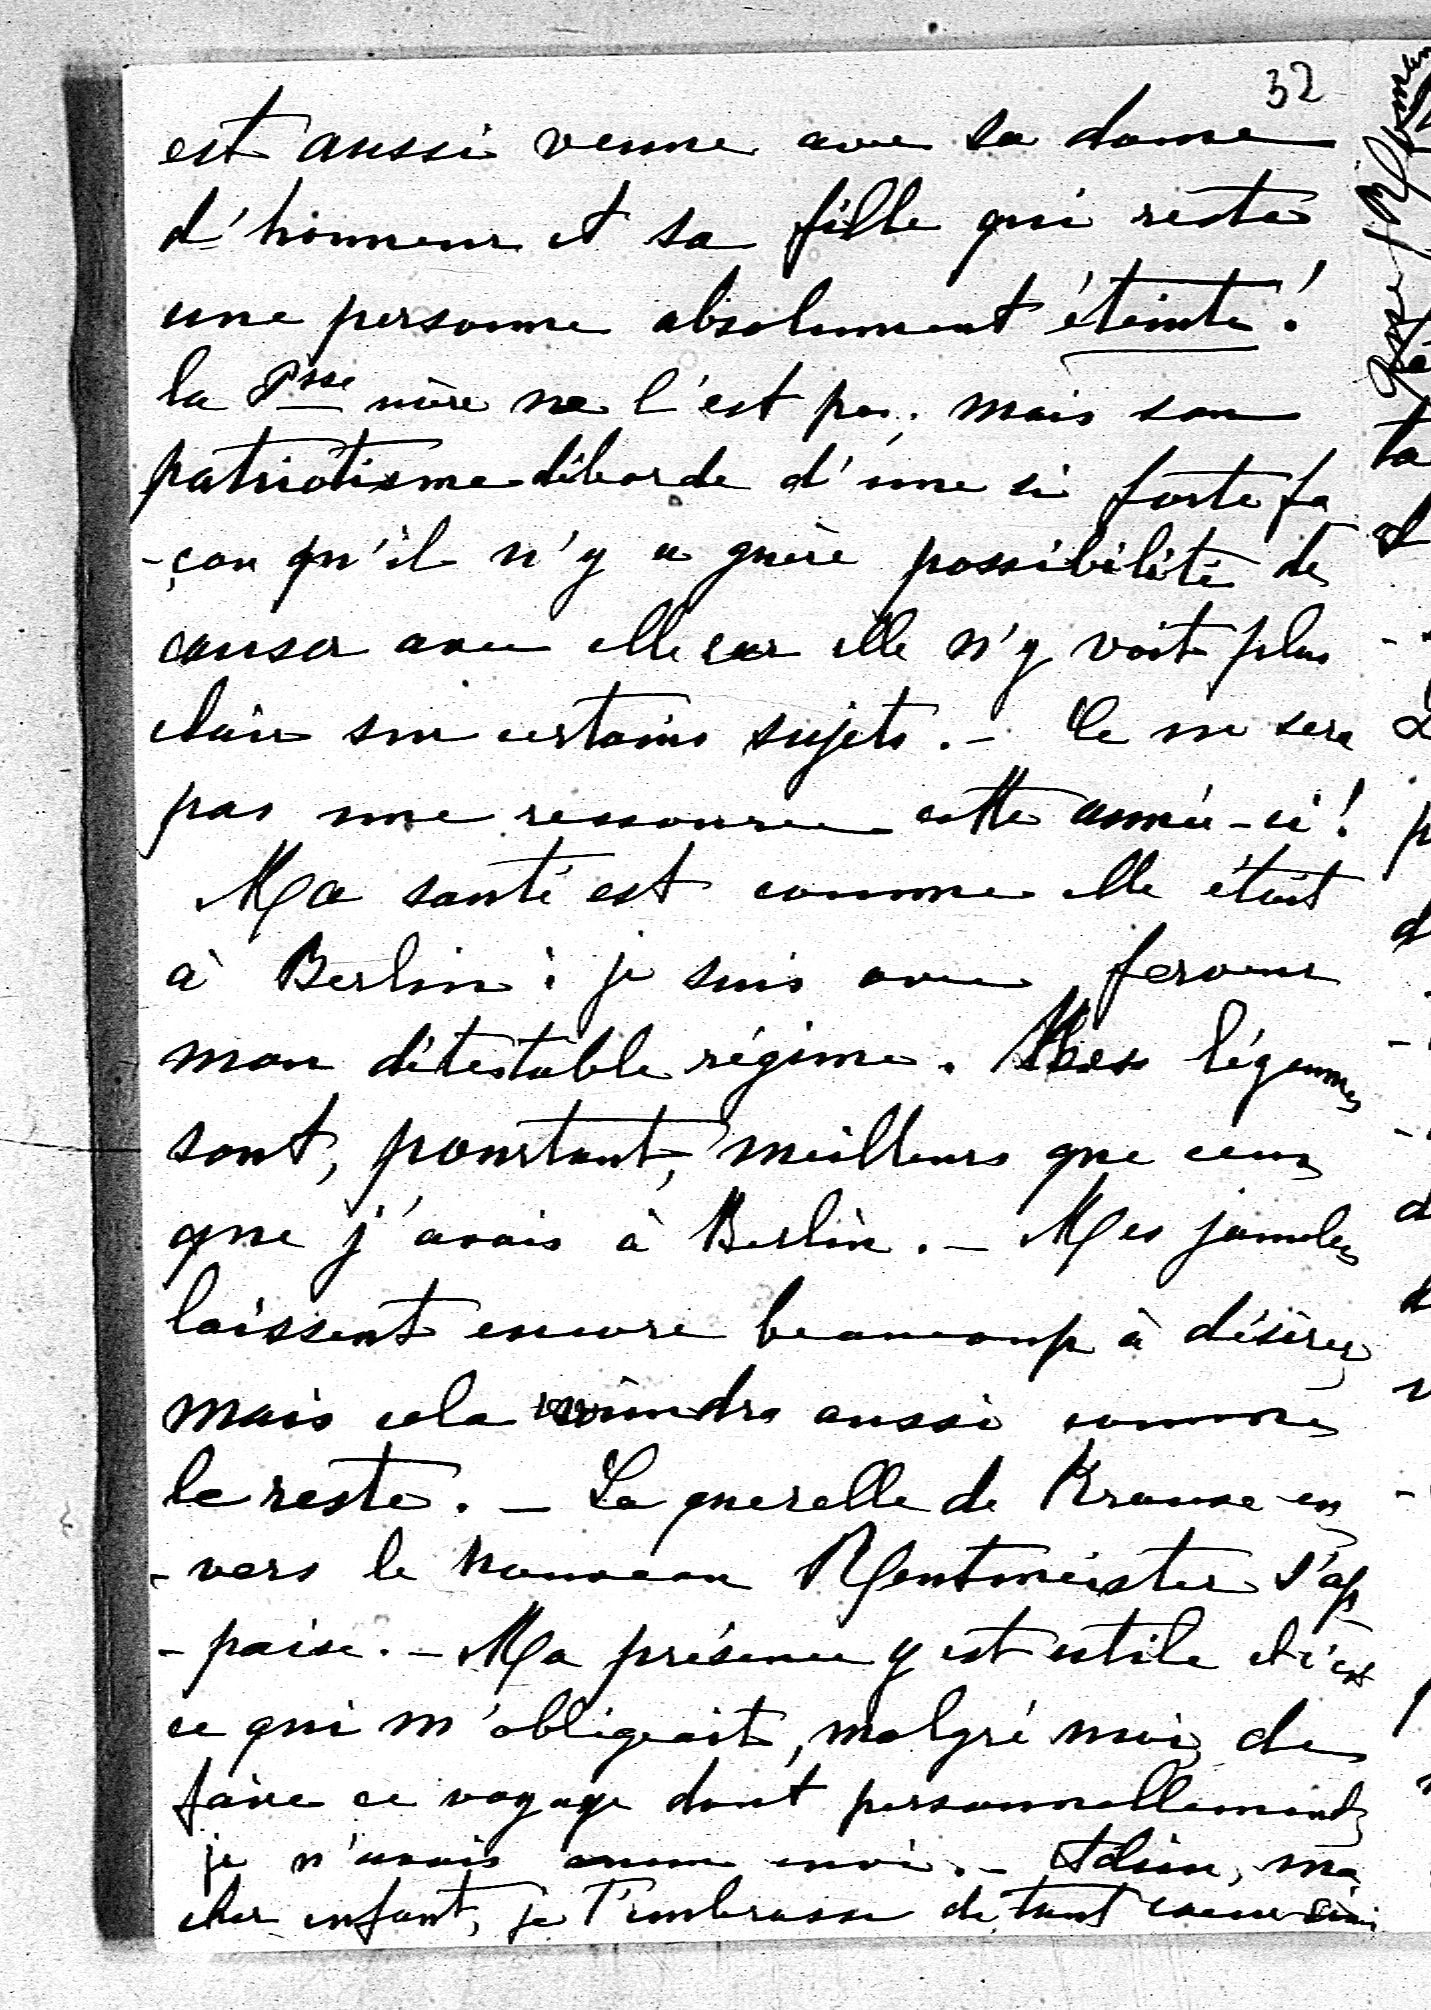 32
est aussi venue avec sa dame
d'honneur et sa fille qui reste
une personne absolument éteinte!
la Psse mère ne l'est pas, mais son
patriotisme déborde d'une si forte fa
-çon qu'il n'y a guère possibilité de
causer avec elle car elle n'y voit plus
clair sur certains sujets. - Ce ne sera
pas une ressource cette année-ci!
Ma santé est comme elle était
à Berlin: je suis avec ferveur
mon détestable régime. Mes légumes
sont, pourtant, meilleurs que ceux
que j'avais à Berlin. - Mes jambes
laissent encore beaucoup à désirer
mais cela viendra aussi comme
le reste. - La querelle de Krause en
-vers le nouveau Rentmeister s'ap
-paise. - Ma présence y est utile et c'est
ce qui m'obligeait, malgré moi, de
faire ce voyage dont personnellement
je n'avais aucune envie. - Adieu, ma
cher enfant, je t'embrasse de tout coeur